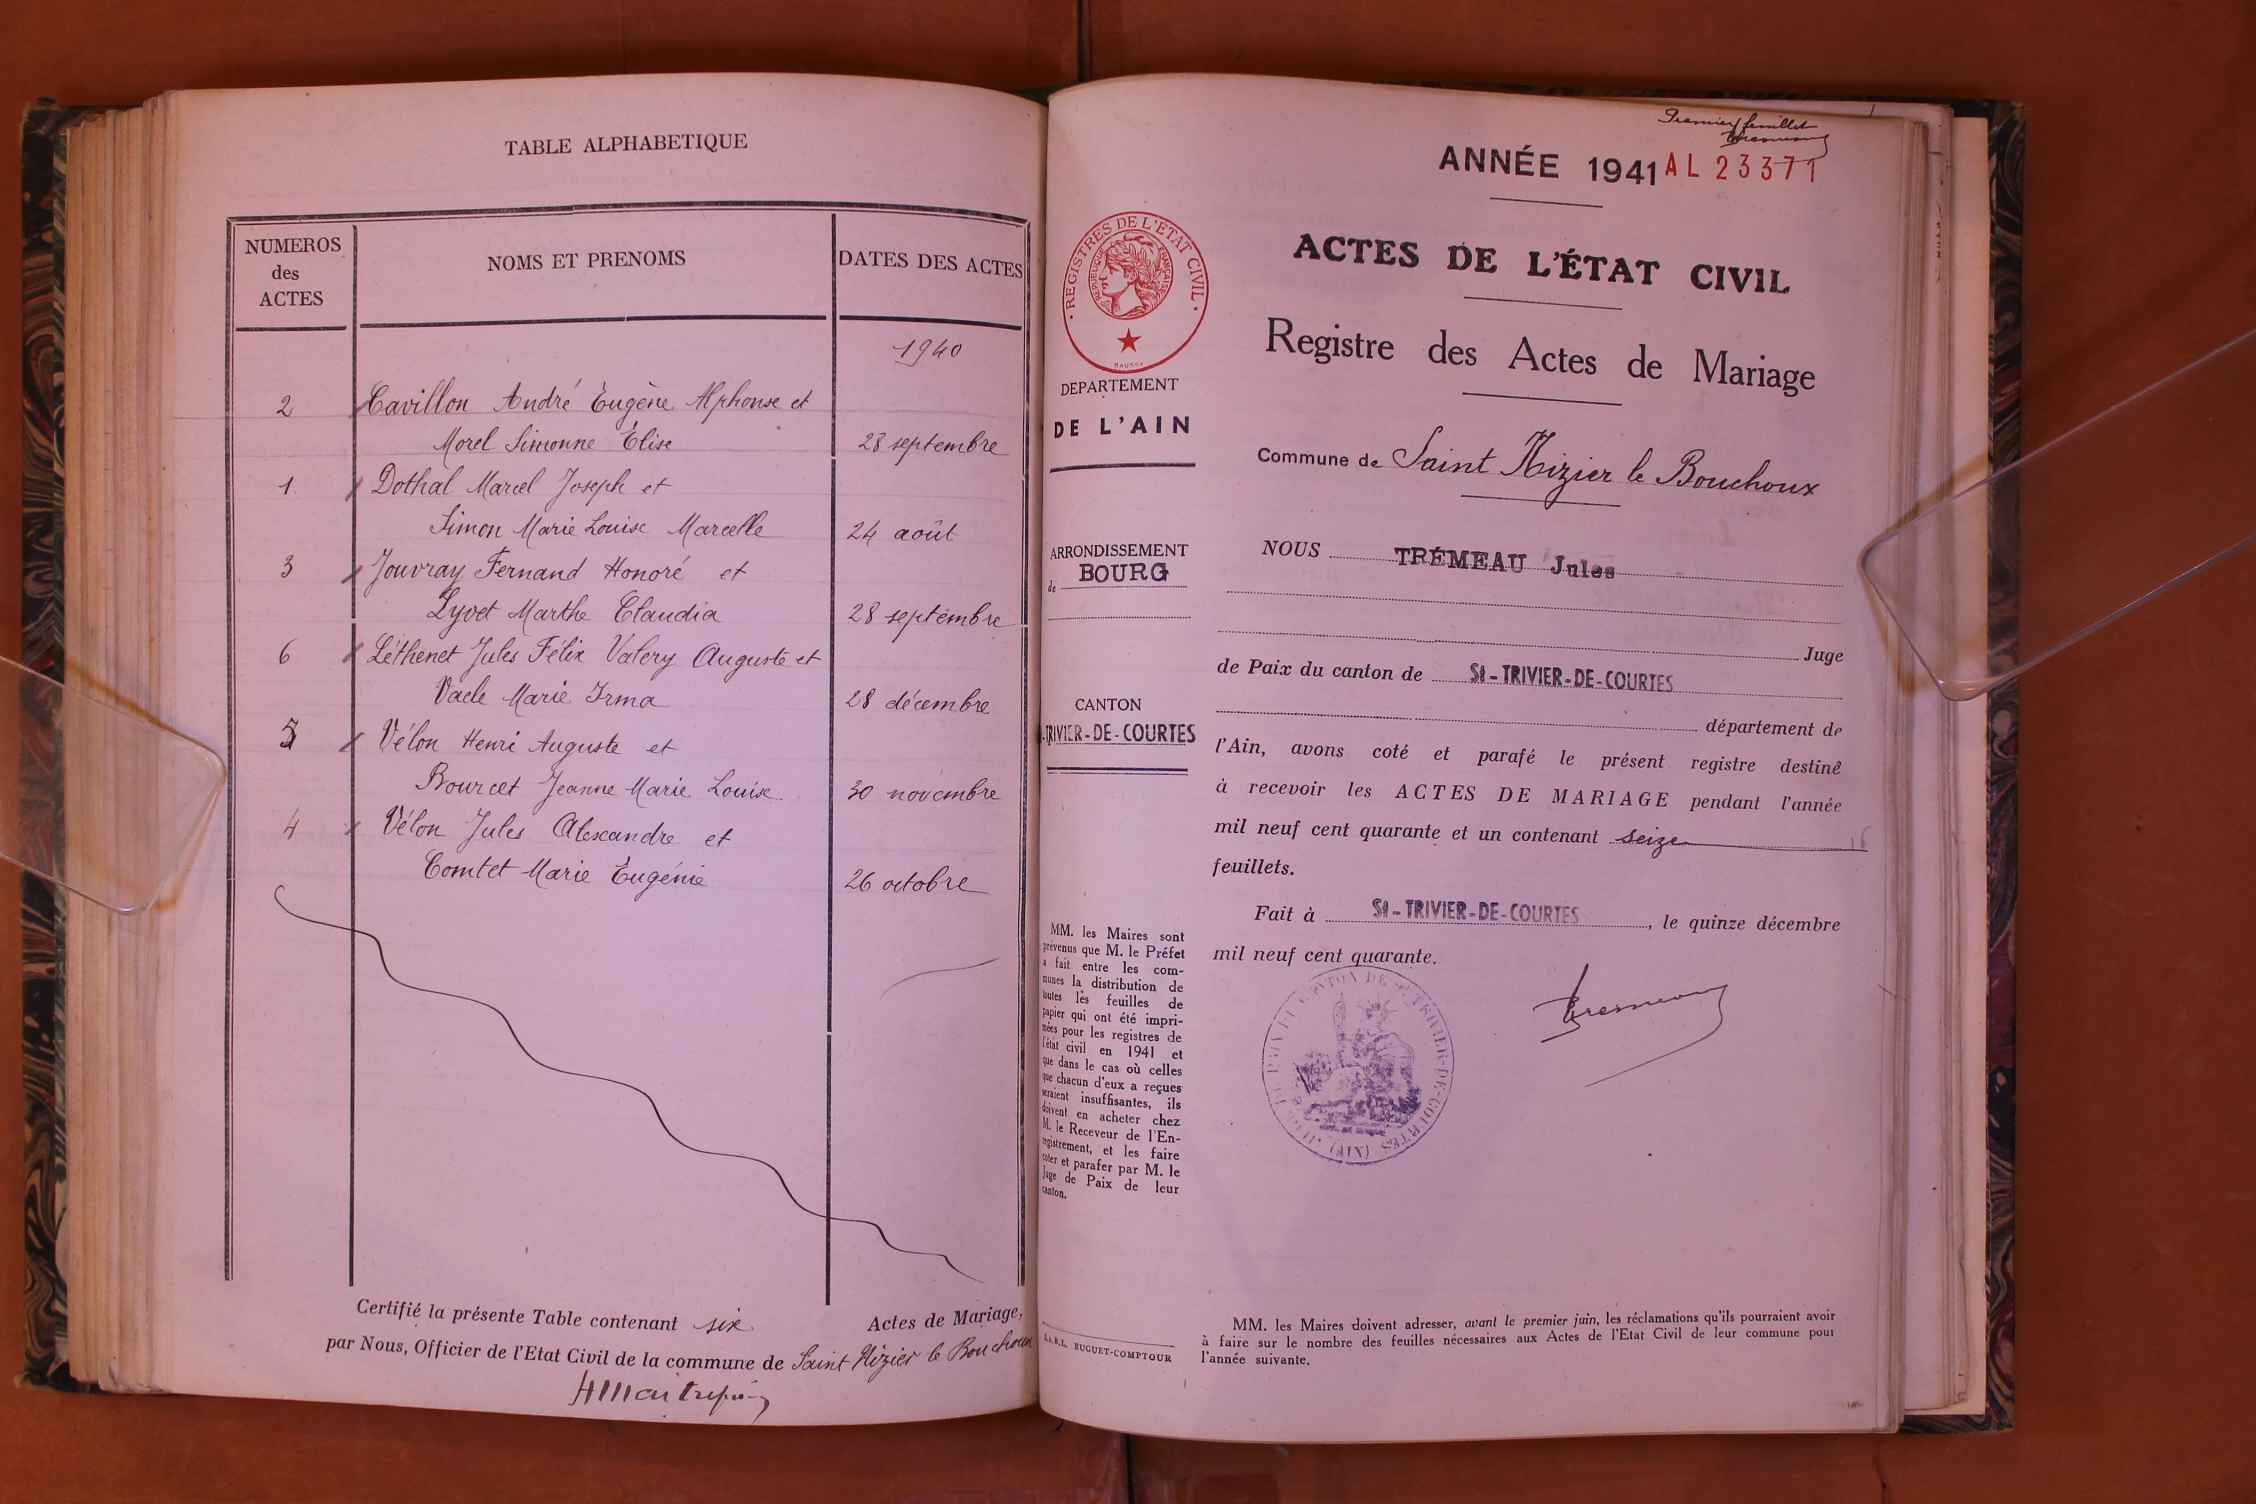 TABLE ALPHABETIQUE
NUMEROS
des
ACTES
NOMS ET PRENOMS
DATES DES ACTES
1940
2 Cavillon André Eugène Alphonse et
Morel Simonne Élise 28 septembre
1 Dothal Marcel Joseph et
Simon Marie Louise Marcelle 24 août
3 Jouvray Fernand Honoré et
Lyvet Marthe Claudia 28 septembre
6 Léthenet Jules Félix Valery Auguste et
Vacle Marie Irma 28 décembre
5 Vélon Henri Auguste et
Bourcet Jeanne Marie Louise 30 novembre
4 Vélon Jules Alexandre et
Comtet Marie Eugénie 26 octobre
Certifié la présente Table contenant six Actes de Mariage,
par Nous, Officier de l'Etat Civil de la commune de Saint Nizier le Bouchoux
Premier feuillet
ANNÉE 1941 AL 23371
REGISTRES DE L'ETAT CIVIL
REPUBLIQUE FRANÇAISE
DEPARTEMENT
DE L'AIN
ARRONDISSEMENT
de BOURG
CANTON
-TRIVIER-DE-COURTES
MM. les Maires sont
prévenus que M. le Préfet
a fait entre les com-
munes la distribution de
toutes les feuilles de
papier qui ont été impri-
mées pour les registres de
l'état civil en 1941 et
que dans le cas où celles
que chacun d'eux a reçues
seraient insuffisantes, ils
doivent en acheter chez
M. le Receveur de l'En-
registrement, et les faire
coter et parafer par M. le
Juge de Paix de leur
canton.
BUGUET-COMPTOUR
ACTES DE L'ÉTAT CIVIL
Registre des Actes de Mariage
Commune de Saint Nizier le Bouchoux
NOUS TRÉMEAU Jules
Juge
de Paix du canton de St-TRIVIER-DE-COURTES
département de
l'Ain, avons coté et parafé le présent registre destiné
à recevoir les ACTES DE MARIAGE pendant l'année
mil neuf cent quarante et un contenant seize 16
feuillets.
Fait à St-TRIVIER-DE-COURTES, le quinze décembre
mil neuf cent quarante.
MM. les Maires doivent adresser, avant le premier jain, les réclamations qu'ils pourraient avoir
à faire sur le nombre des feuilles nécessaires aux Actes de l'Etat Civil de leur commune pour
l'année suivante.